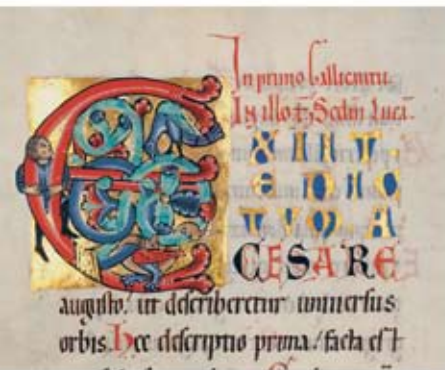 In primo Gallicantu
In illo t̄. Scdm̄ Lucā.
EXIIT.
EDIC
TVM A
CESARE
augusto. ut describeretur uniuersus
orbis. Hec descriptio prima. facta est